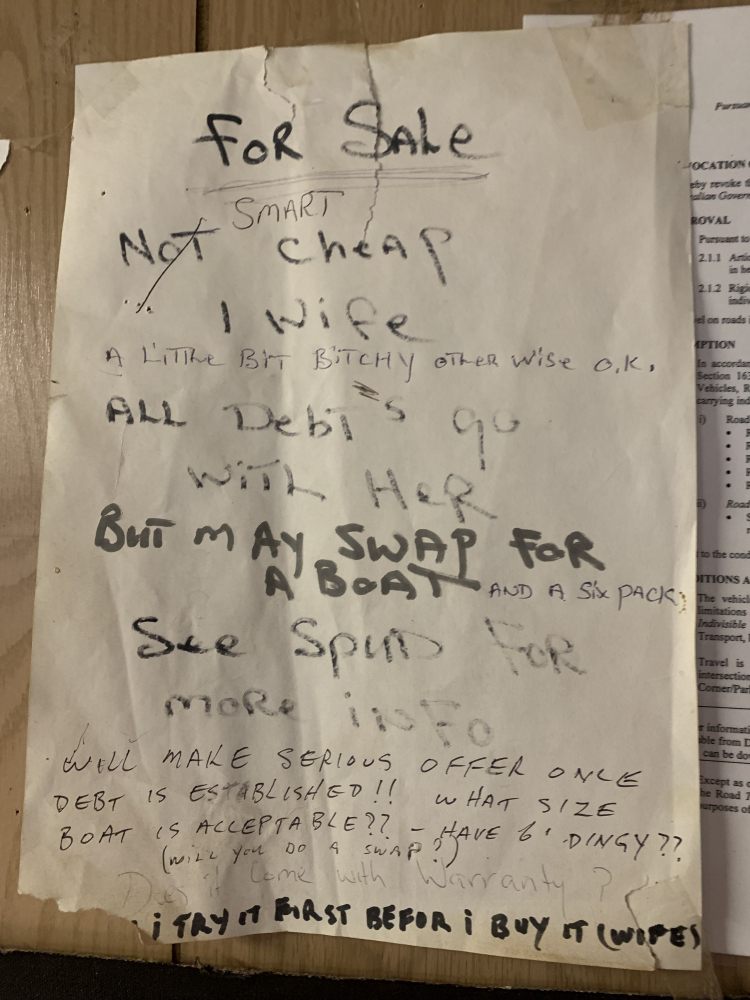 FOR SALE
SMART
NOT CHEAP
1 WIFE
A LITTLE BIT BITCHY OTHER WISE O.K.
ALL Debt's go
WITH HER
BUT MAY SWAP FOR
A BOAT AND A SIX PACK
See SPUD FOR
MORE INFO
WILL MAKE SERIOUS OFFER ONCE
DEBT IS ESTABLISHED!! WHAT SIZE
BOAT IS ACCEPTABLE?? - HAVE 6' DINGY??
(WILL YOU DO A SWAP?)
Does it Come with Warranty?
i TRY IT FIRST BEFOR i BUY IT (WIFES)
Pursua
OCATION
eby revoke
alian Govern
ROVAL
Pursuant to
2.1.1 Artic
in he
2.1.2 Rigi
indiv
el on roads
PTION
In accordan
Section 163
Vehicles, R
carrying ind
i) Road
• R
• R
• R
• R
• R
ii) Road
• S
to the cond
DITIONS A
The vehicl
limitations
Indivisible
Transport,
Travel is
intersection
Corner/Par
r informati
ble from D
can be dow
Except as
he Road
urposes of